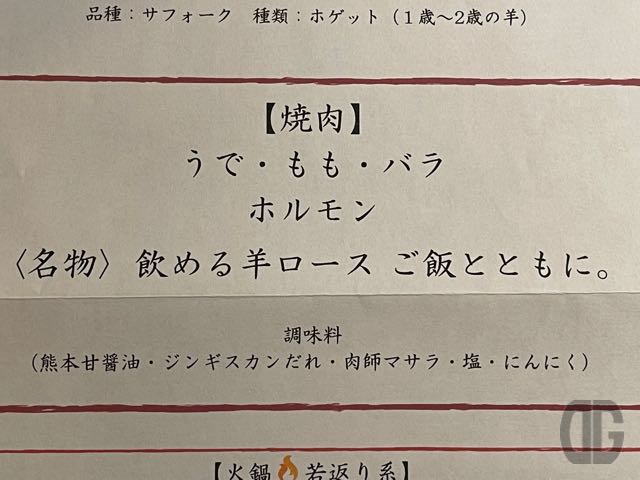 品種：サフォーク　種類：ホゲット（１歳〜2歳の羊）
【焼肉】
うで・もも・バラ
ホルモン
〈名物〉飲める羊ロース ご飯とともに。
調味料
（熊本甘醤油・ジンギスカンだれ・肉師マサラ・塩・にんにく）
【火鍋🔥若返り系】
DG